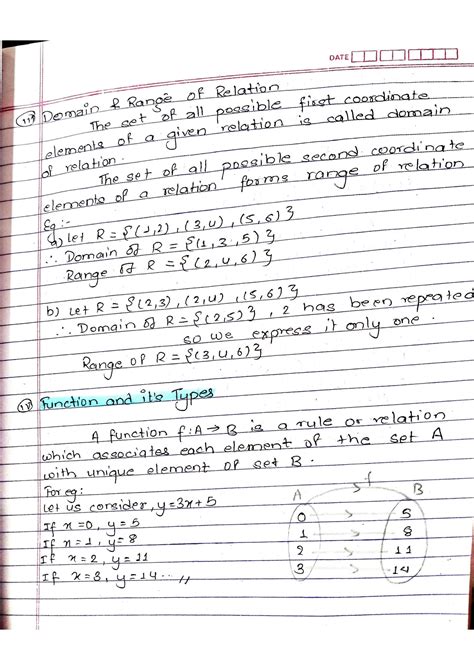 DATE
iii) Domain & Range of Relation
The set of all possible first coordinate
elements of a given relation is called domain
of relation.
The set of all possible second coordinate
elements of a relation forms range of relation
Eg:-
a) let R = {(1,2), (3,4), (5,6)}
∴ Domain of R = {(1,3,5)}
Range of R = {(2,4,6)}
b) Let R = {(2,3), (2,4), (5,6)}
∴ Domain of R = {(2,5)}, 2 has been repeated
so we express it only one.
Range of R = {(3,4,6)}
iv) Function and it's Types
A function f:A→B is a rule or relation
which associates each element of the set A
with unique element of set B.
For eg:
Let us consider, y=3x+5
If x=0, y=5
If x=1, y=8
If x=2, y=11
If x=3, y=14...,,
f
A B
0 > 5
1 > 8
2 > 11
3 > 14